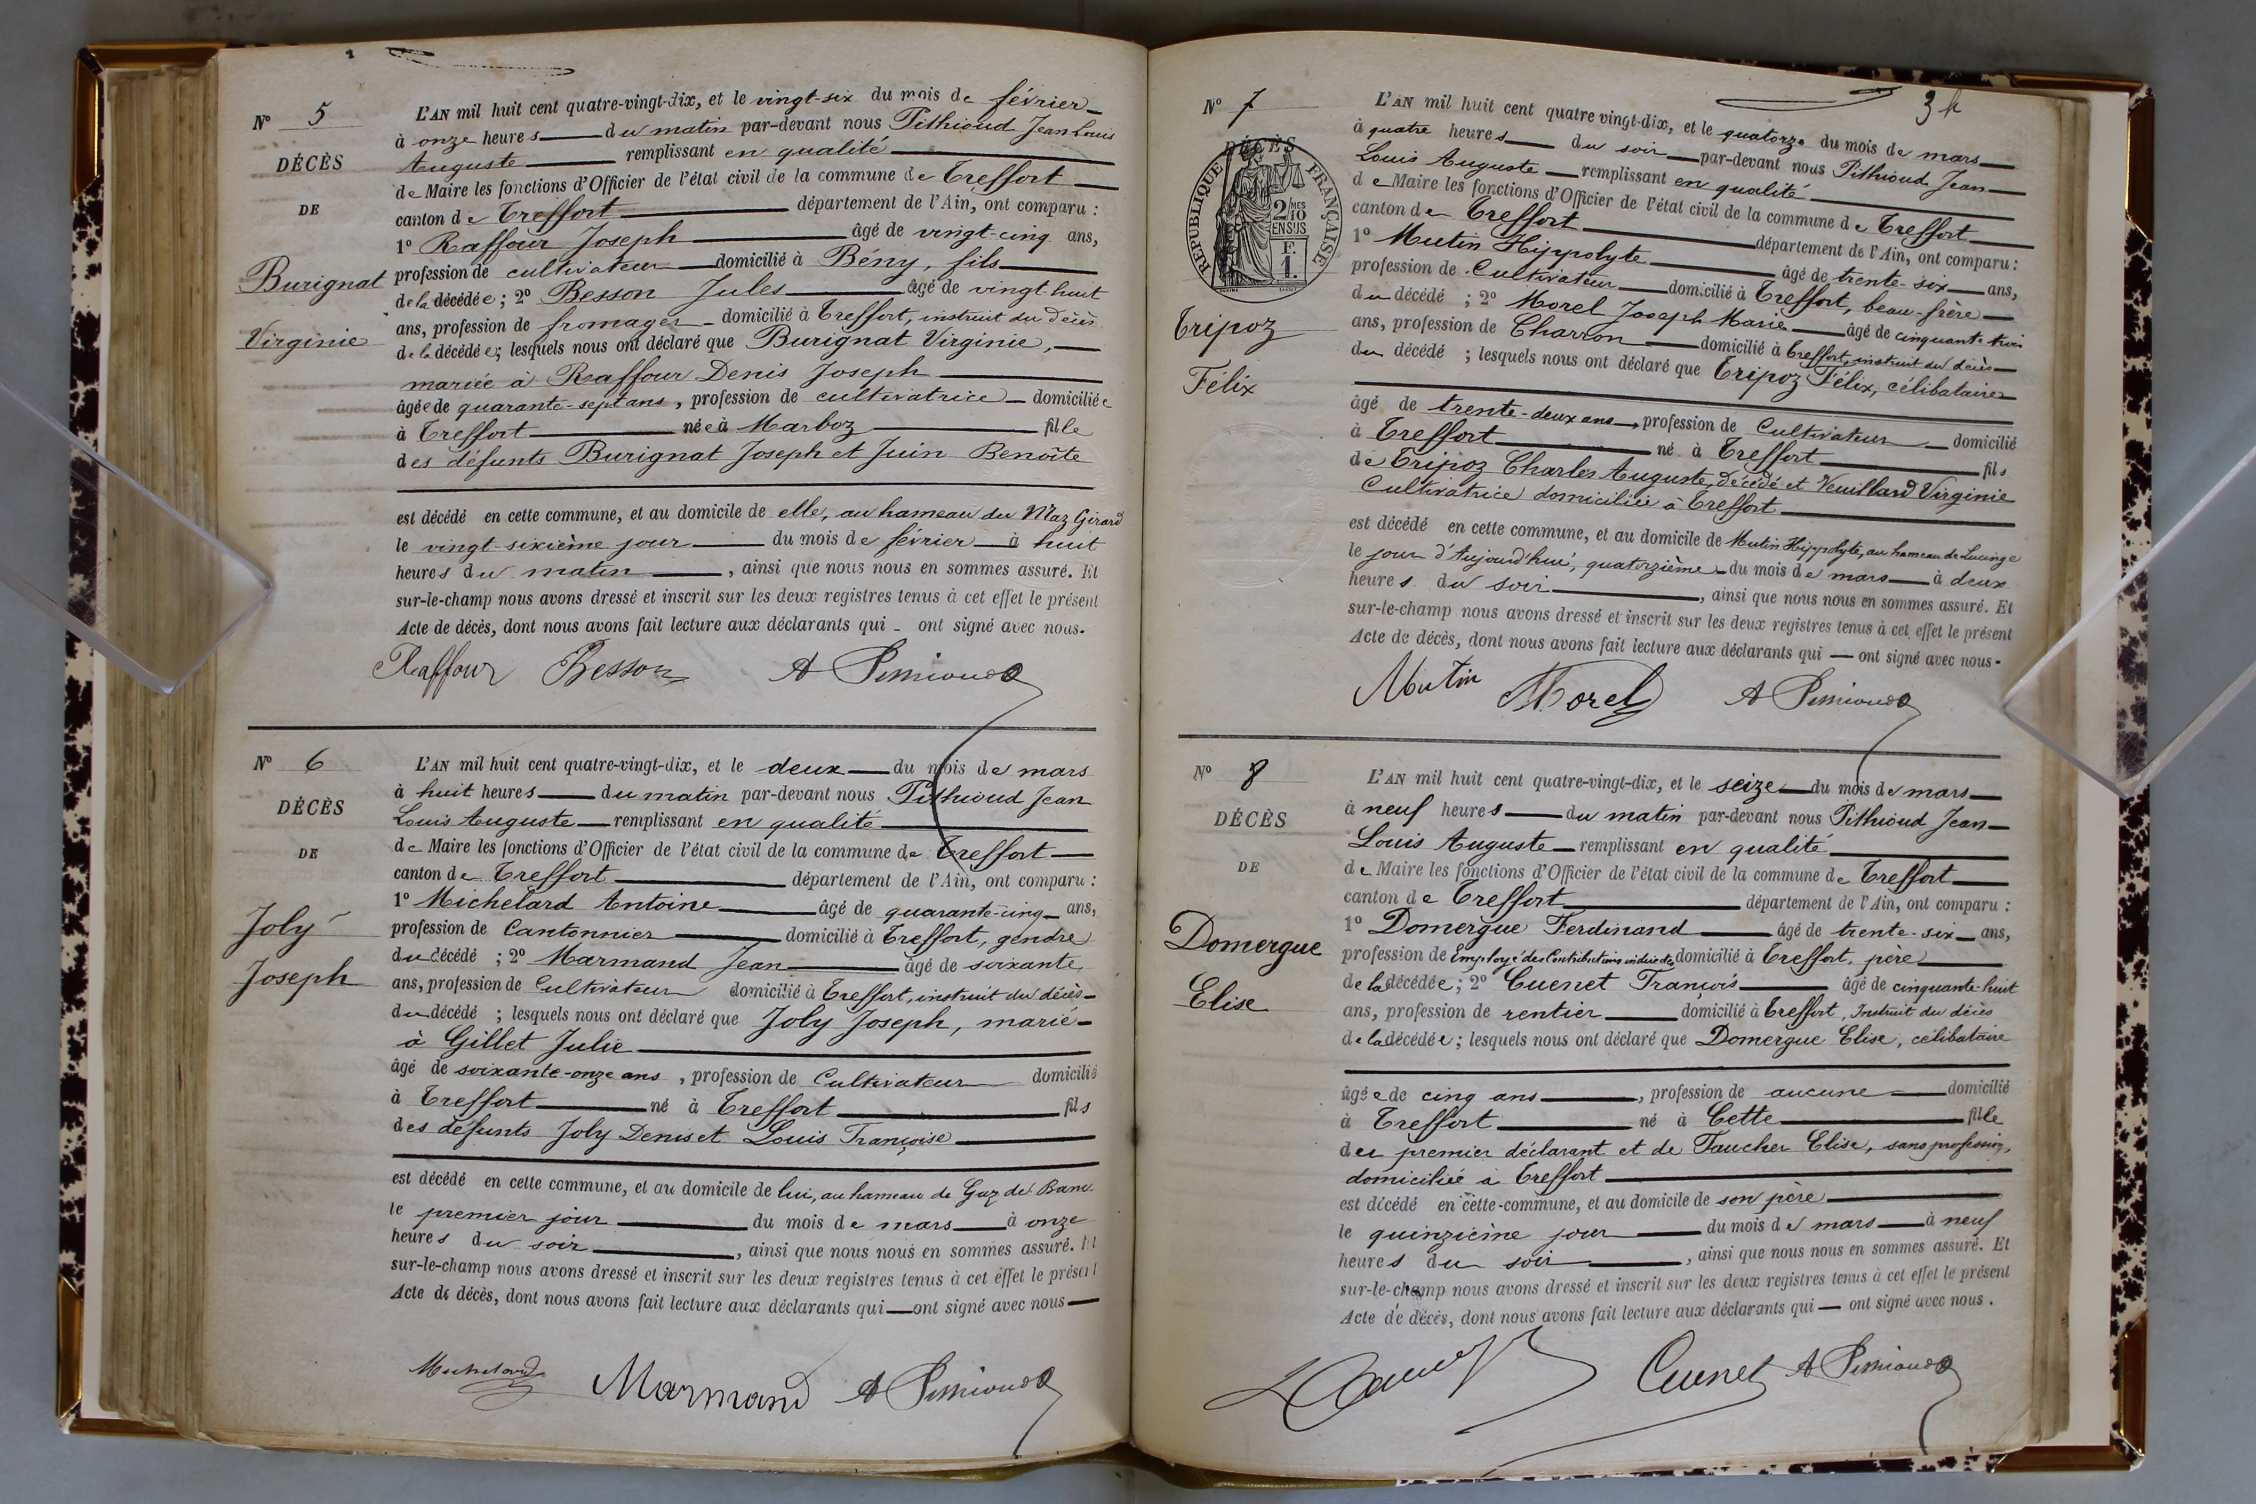 N° 5
DÉCÈS
DE
Burignat
Virginie
L'AN mil huit cent quatre-vingt-dix, et le vingt-six du mois de février
à onze heures du matin par-devant nous Pithioud Jean Louis
Auguste remplissant en qualité
de Maire les fonctions d'Officier de l'état civil de la commune de Treffort
canton de Treffort département de l'Ain, ont comparu :
1° Raffour Joseph âgé de vingt-cinq ans,
profession de cultivateur domicilié à Bény, fils
de la décédée ; 2° Besson Jules âgé de vingt huit
ans, profession de fromager domicilié à Treffort, instruit du décès
de la décédée ; lesquels nous ont déclaré que Burignat Virginie,
mariée à Raffour Denis Joseph
âgée de quarante-sept ans, profession de cultivatrice domiciliée
à Treffort née à Marboz fille
des défunts Burignat Joseph et Juin Benoîte
est décédé en cette commune, et au domicile de elle, au hameau du Maz Girard
le vingt-sixième jour du mois de février à huit
heures du matin, ainsi que nous nous en sommes assuré. Et
sur-le-champ nous avons dressé et inscrit sur les deux registres tenus à cet effet le présent
Acte de décès, dont nous avons fait lecture aux déclarants qui ont signé avec nous.
Raffour Besson A Pithioud
N° 6
DÉCÈS
DE
Joly
Joseph
L'AN mil huit cent quatre-vingt-dix, et le deux du mois de mars
à huit heures du matin par-devant nous Pithioud Jean
Louis Auguste remplissant en qualité
de Maire les fonctions d'Officier de l'état civil de la commune de Treffort
canton de Treffort département de l'Ain, ont comparu :
1° Michelard Antoine âgé de quarante-cinq ans,
profession de Cantonnier domicilié à Treffort, gendre
du décédé ; 2° Marmand Jean âgé de soixante
ans, profession de Cultivateur domicilié à Treffort, instruit du décès
du décédé ; lesquels nous ont déclaré que Joly Joseph, marié
à Gillet Julie
âgé de soixante-onze ans, profession de Cultivateur domicilié
à Treffort né à Treffort fils
des défunts Joly Denis et Louis Françoise
est décédé en cette commune, et au domicile de lui, au hameau de
le premier jour du mois de mars à onze
heures du soir, ainsi que nous nous en sommes assuré. Et
sur-le-champ nous avons dressé et inscrit sur les deux registres tenus à cet effet le présent
Acte de décès, dont nous avons fait lecture aux déclarants qui ont signé avec nous
Michelard Marmand A Pithioud
N° 7
DÉCÈS
RÉPUBLIQUE FRANÇAISE
2/10 MES
EN SUS
F.
1.
Tripoz
Félix
L'AN mil huit cent quatre vingt-dix, et le quatorze du mois de mars
à quatre heures du soir par-devant nous Pithioud Jean
Louis Auguste remplissant en qualité
de Maire les fonctions d'Officier de l'état civil de la commune de Treffort
canton de Treffort département de l'Ain, ont comparu :
1° Mutin Hippolyte âgé de trente-six ans,
profession de Cultivateur domicilié à Treffort, beau-frère
du décédé ; 2° Morel Joseph Marie âgé de cinquante trois
ans, profession de Charron domicilié à Treffort, instruit du décès
du décédé ; lesquels nous ont déclaré que Tripoz Félix, célibataire
âgé de trente-deux ans, profession de Cultivateur domicilié
à Treffort né à Treffort fils
de Tripoz Charles Auguste, décédé et Veuillard Virginie
Cultivatrice domiciliée à Treffort
est décédé en cette commune, et au domicile de Mutin Hippolyte, au hameau de
le jour d'Aujourd'hui, quatorzième du mois de mars à deux
heures du soir, ainsi que nous nous en sommes assuré. Et
sur-le-champ nous avons dressé et inscrit sur les deux registres tenus à cet effet le présent
Acte de décès, dont nous avons fait lecture aux déclarants qui ont signé avec nous.
Mutin Morel A Pithioud
N° 8
DÉCÈS
DE
Domergue
Elise
L'AN mil huit cent quatre-vingt-dix, et le seize du mois de mars
à neuf heures du matin par-devant nous Pithioud Jean
Louis Auguste remplissant en qualité
de Maire les fonctions d'Officier de l'état civil de la commune de Treffort
canton de Treffort département de l'Ain, ont comparu :
1° Domergue Ferdinand âgé de trente-six ans,
profession de Employé des Contributions indirectes domicilié à Treffort, père
de la décédée ; 2° Cuenet François âgé de cinquante-huit
ans, profession de rentier domicilié à Treffort, Instruit du décès
de la décédée ; lesquels nous ont déclaré que Domergue Elise, célibataire
âgée de cinq ans, profession de aucune domicilié
à Treffort né à Cette fille
du premier déclarant et de Faucher Elise, sans profession,
domiciliée à Treffort
est décédé en cette commune, et au domicile de son père
le quinzième jour du mois de mars à neuf
heures du soir, ainsi que nous nous en sommes assuré. Et
sur-le-champ nous avons dressé et inscrit sur les deux registres tenus à cet effet le présent
Acte de décès, dont nous avons fait lecture aux déclarants qui ont signé avec nous.
Cuenet A Pithioud